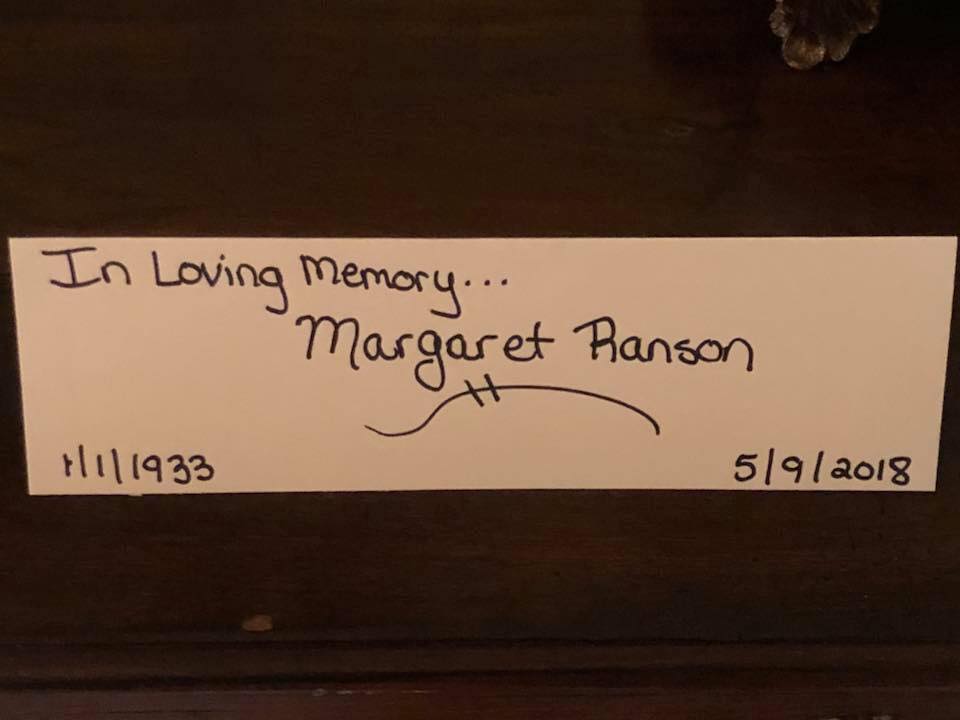 In Loving Memory...
Margaret Ranson
1/1/1933
5/9/2018